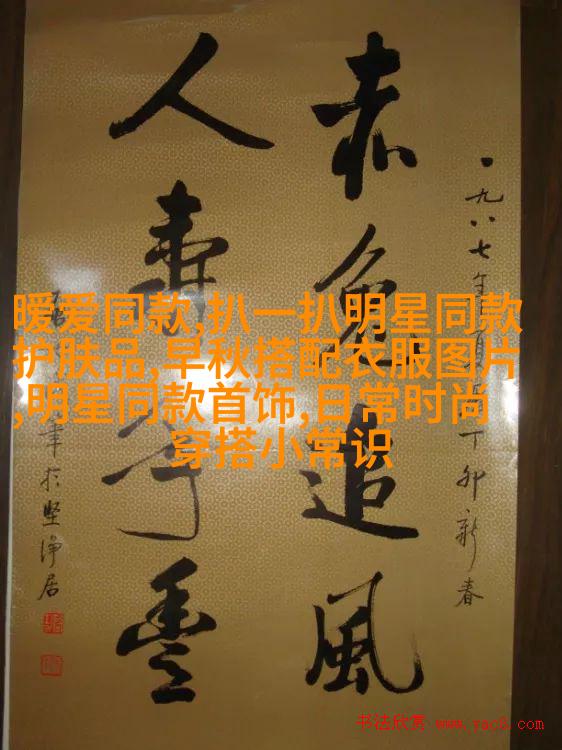 暖爱同款,扒一扒明星同款
护肤品,早秋搭配衣服图片
,明星同款首饰,日常时尚
穿搭小常识
一九八七年丁卯新春
赤兔追風
人寿年豐
筆於坚净居
书法欣赏 www.yac8.com